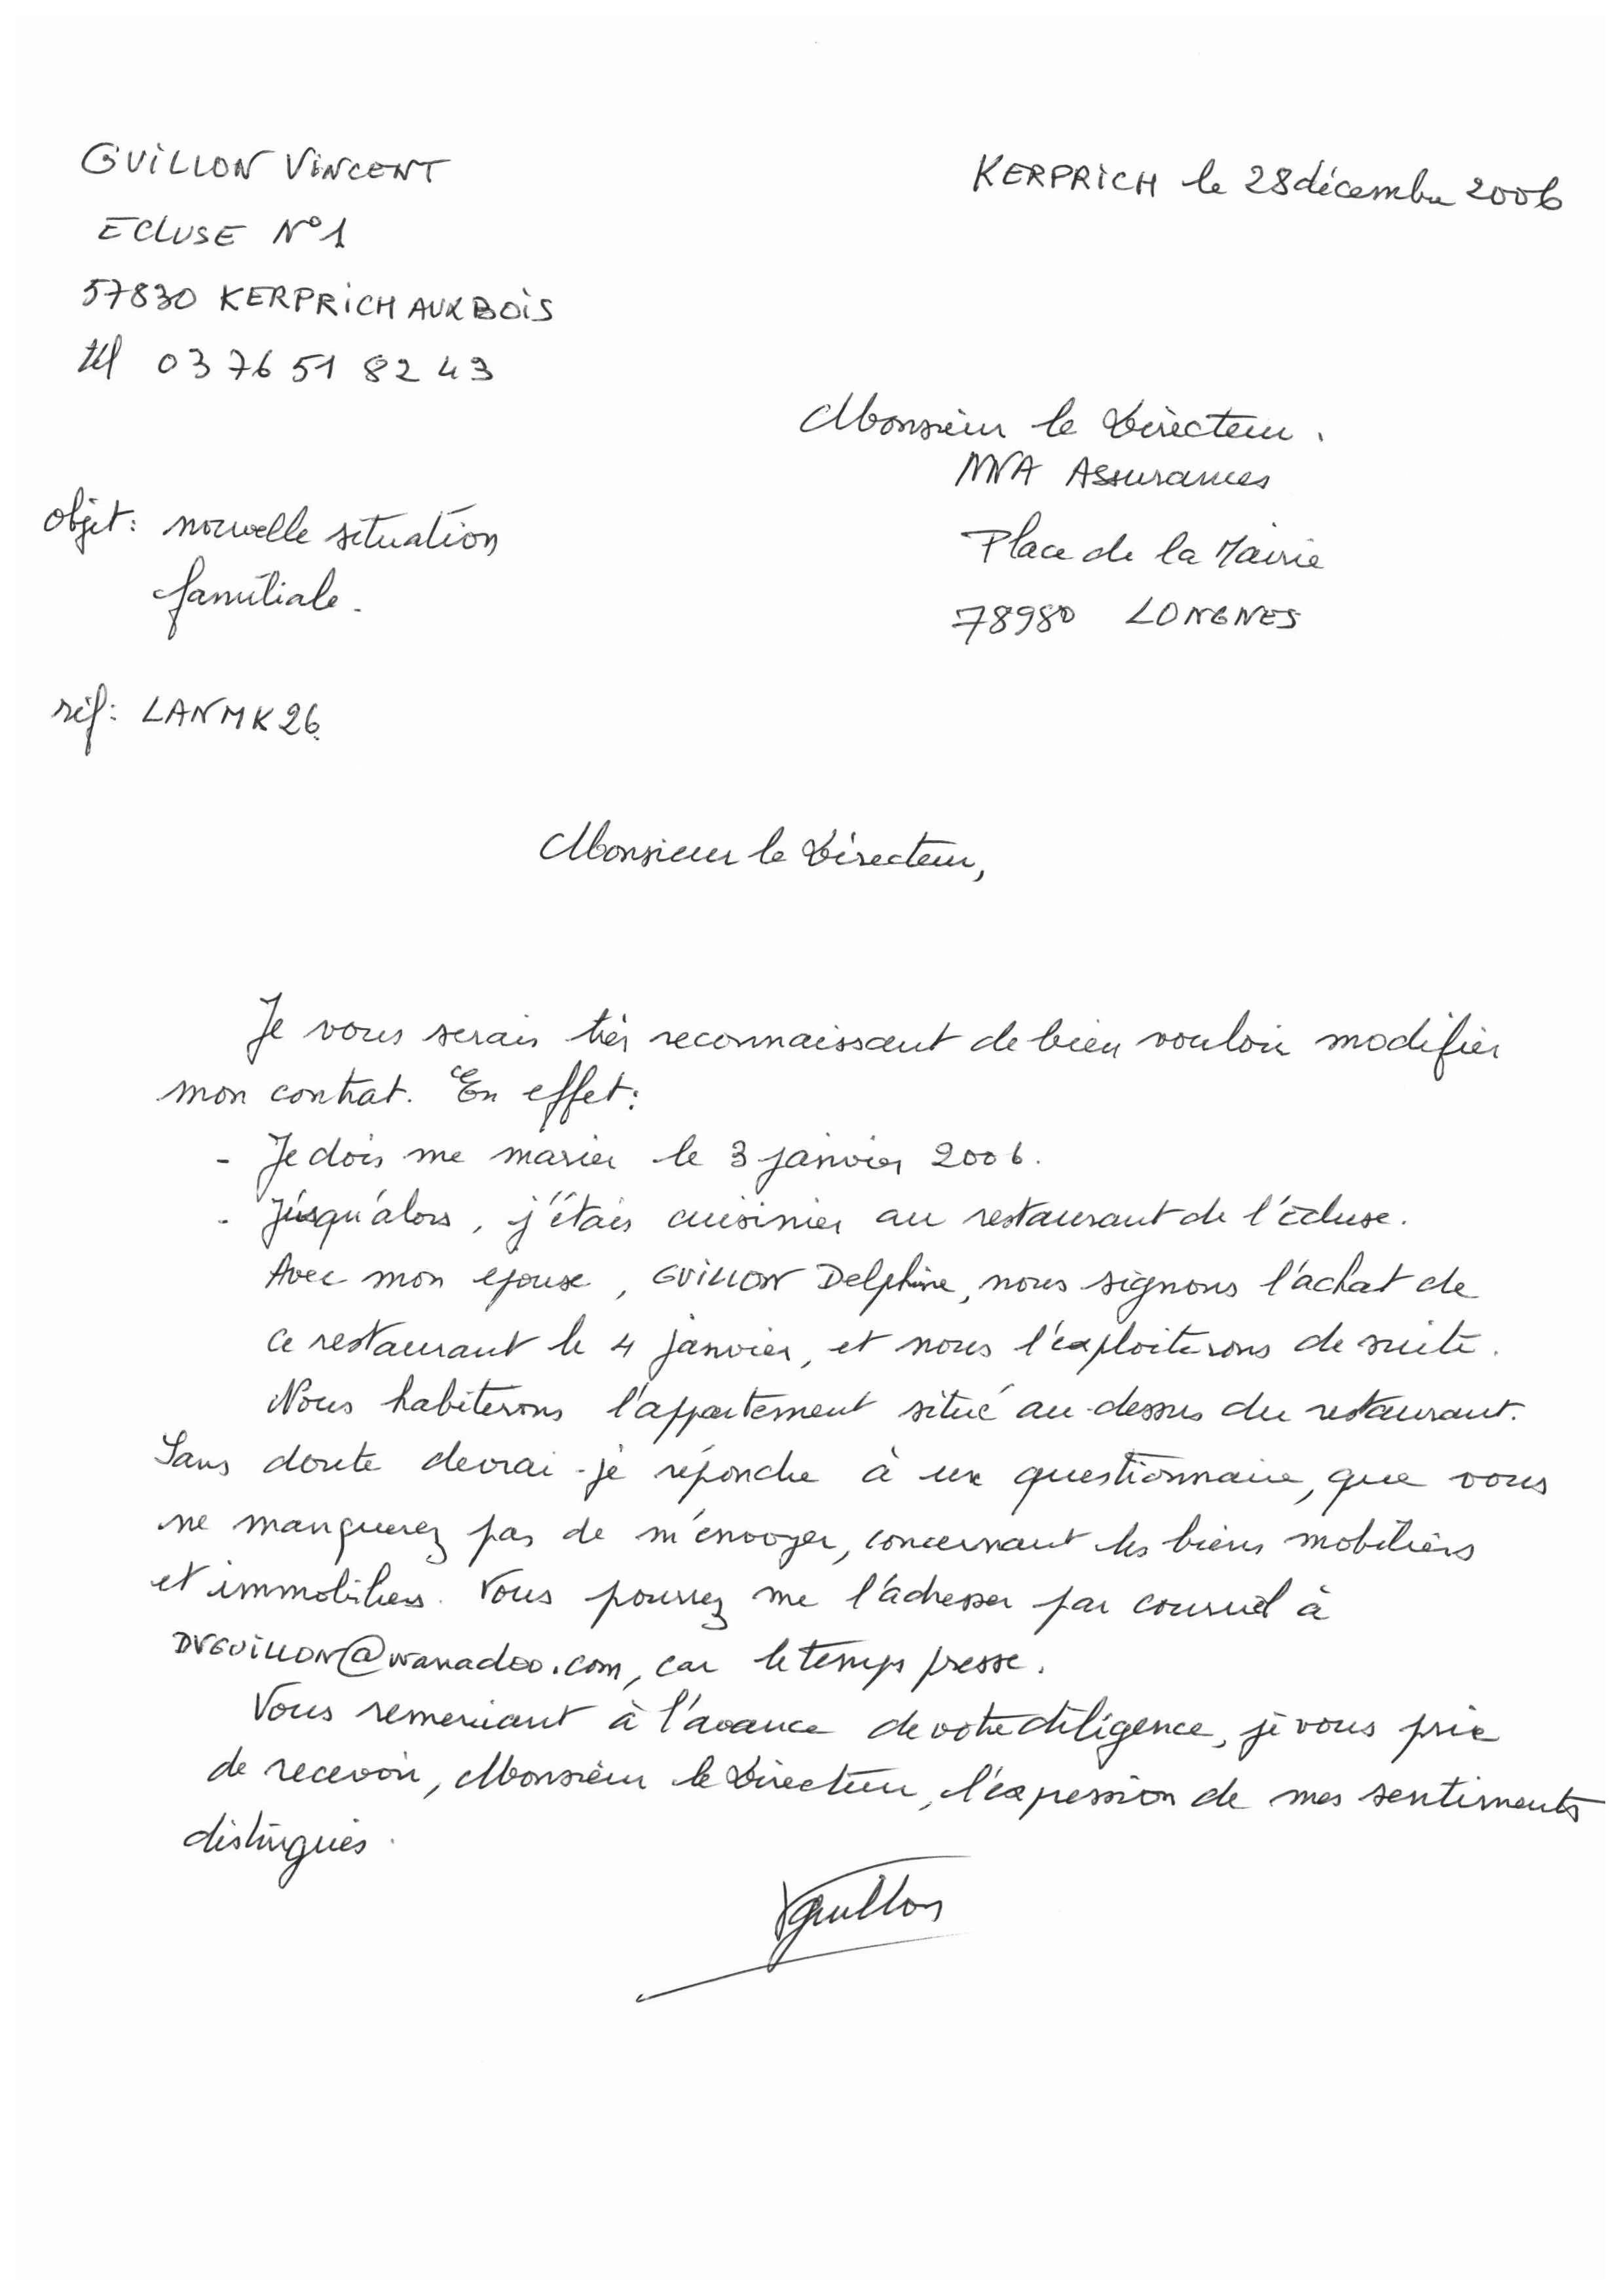 GUILLON VINCENT
ECLUSE N°1
57830 KERPRICH AUX BOIS
tél 03 76 51 82 43
KERPRICH le 28 décembre 2006
Monsieur le Directeur.
MVA Assurances
Place de la Mairie
78980 LONGNES
objet: nouvelle situation
familiale.
réf: LANMK26
Monsieur le Directeur,
Je vous serais très reconnaissant de bien vouloir modifier
mon contrat. En effet:
- Je dois me marier le 3 janvier 2006.
- Jusqu'alors, j'étais cuisinier au restaurant de l'écluse.
Avec mon epouse, GUILLON Delphine, nous signons l'achat de
ce restaurant le 4 janvier, et nous l'exploiterons de suite.
Nous habiterons l'appartement situé au-dessus du restaurant.
Sans doute devrai-je répondre à un questionnaire, que vous
ne manquerez pas de m'envoyer, concernant les biens mobiliers
et immobiliers. Vous pourrez me l'adresser par courriel à
DVGUILLON@wanadoo.com, car le temps presse.
Vous remerciant à l'avance de votre diligence, je vous prie
de recevoir, Monsieur le Directeur, l'expression de mes sentiments
distingués.
VGuillon